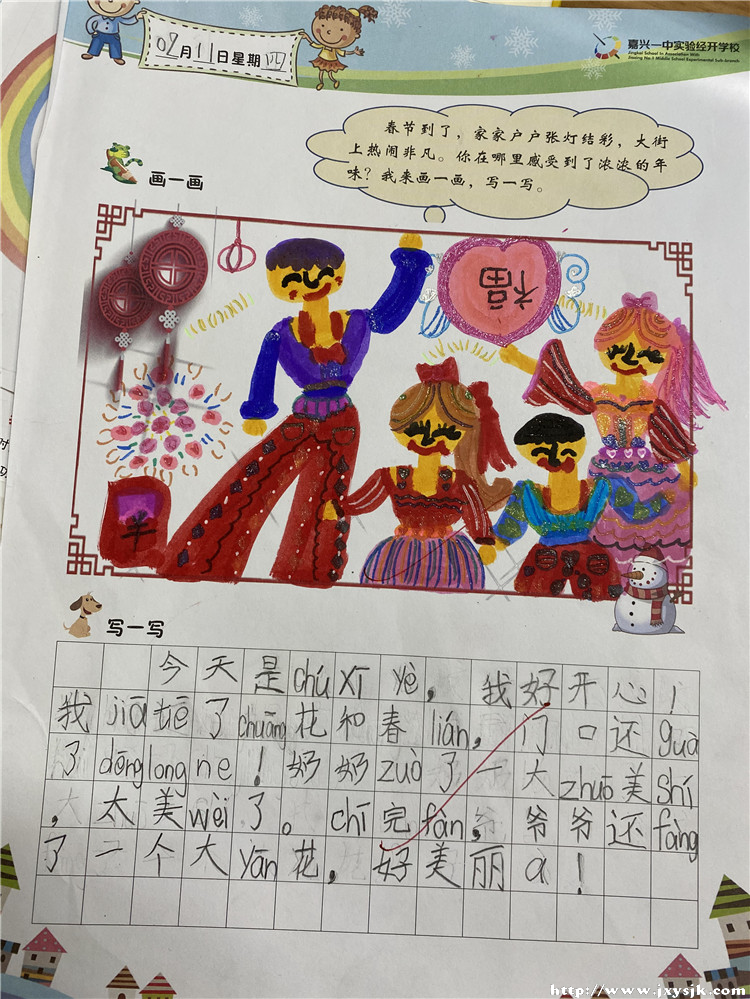 02月11日星期四
嘉兴一中实验经开学校
春节到了，家家户户张灯结彩，大街
上热闹非凡。你在哪里感受到了浓浓的年
味？我来画一画，写一写。
画一画
福
写一写
今天是chú xī yè，我好开心！
我jiā tiē了chuāng花和春lián，门口还guà
了dēng long ne！奶奶zuò了一大zhuō美shí
，太美wèi了。chī完fàn，爷爷还fàng
了一个大yān花，好美丽a！
http://www.jxysjk.com